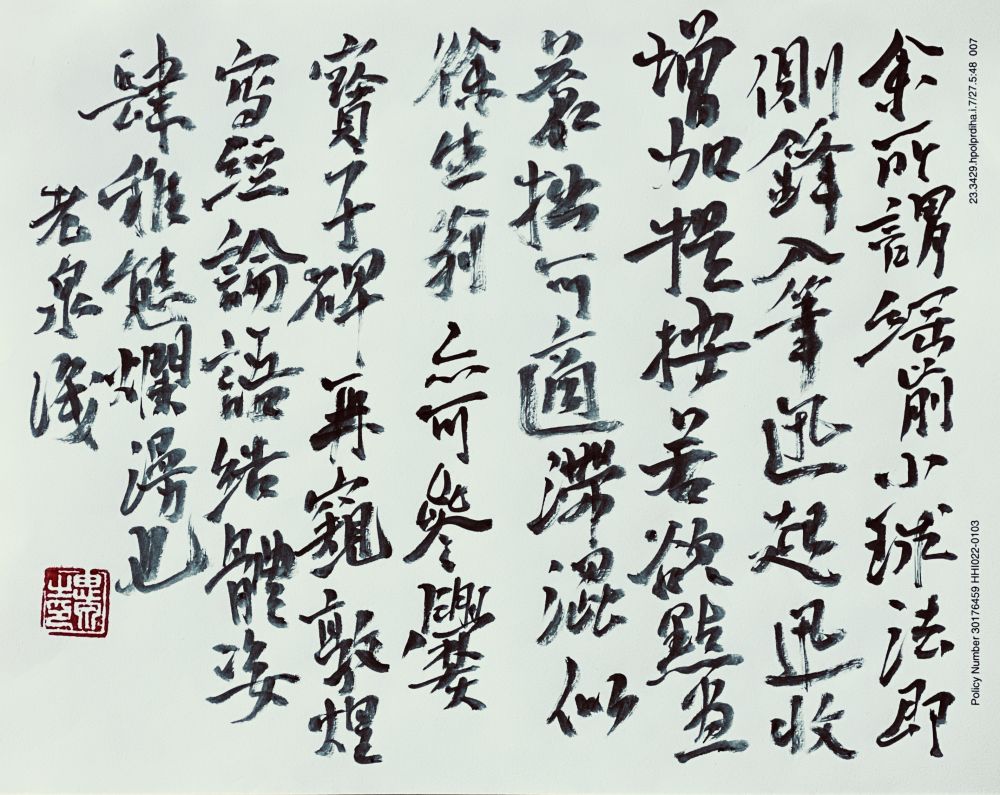 余所謂網前小球法即
側鋒入筆迅起迅收
增加提按若欲點畫
蒼拙可適滯澀似
徐生翁亦可參爨
寶子碑再窺敦煌
寫經論語結體姿
肆稚態爛漫也
老泉淺
23.3429.hpolprdiha.i.7/27.5:48 007
Policy Number 30176459 HHI022-0103